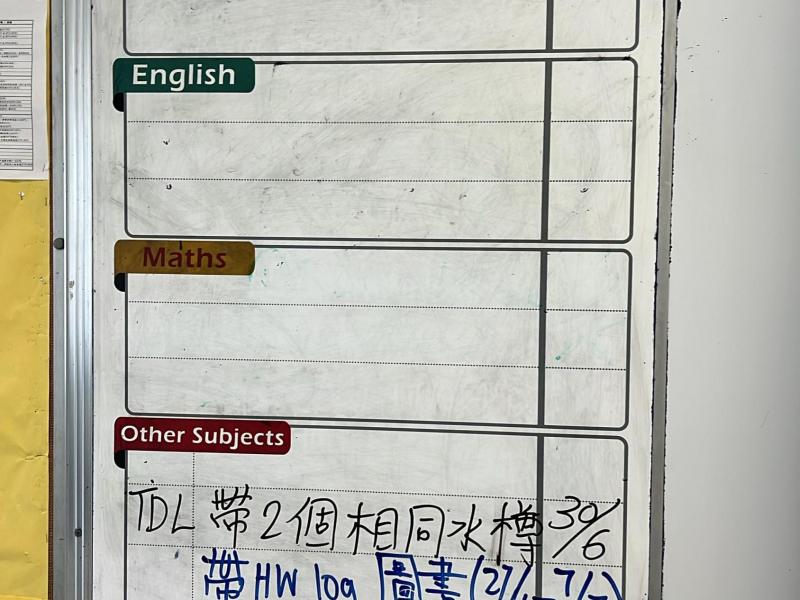 English
Maths
Other Subjects
TDL 帶2個相同水樽 30/6
帶HW log 圖書 (27/